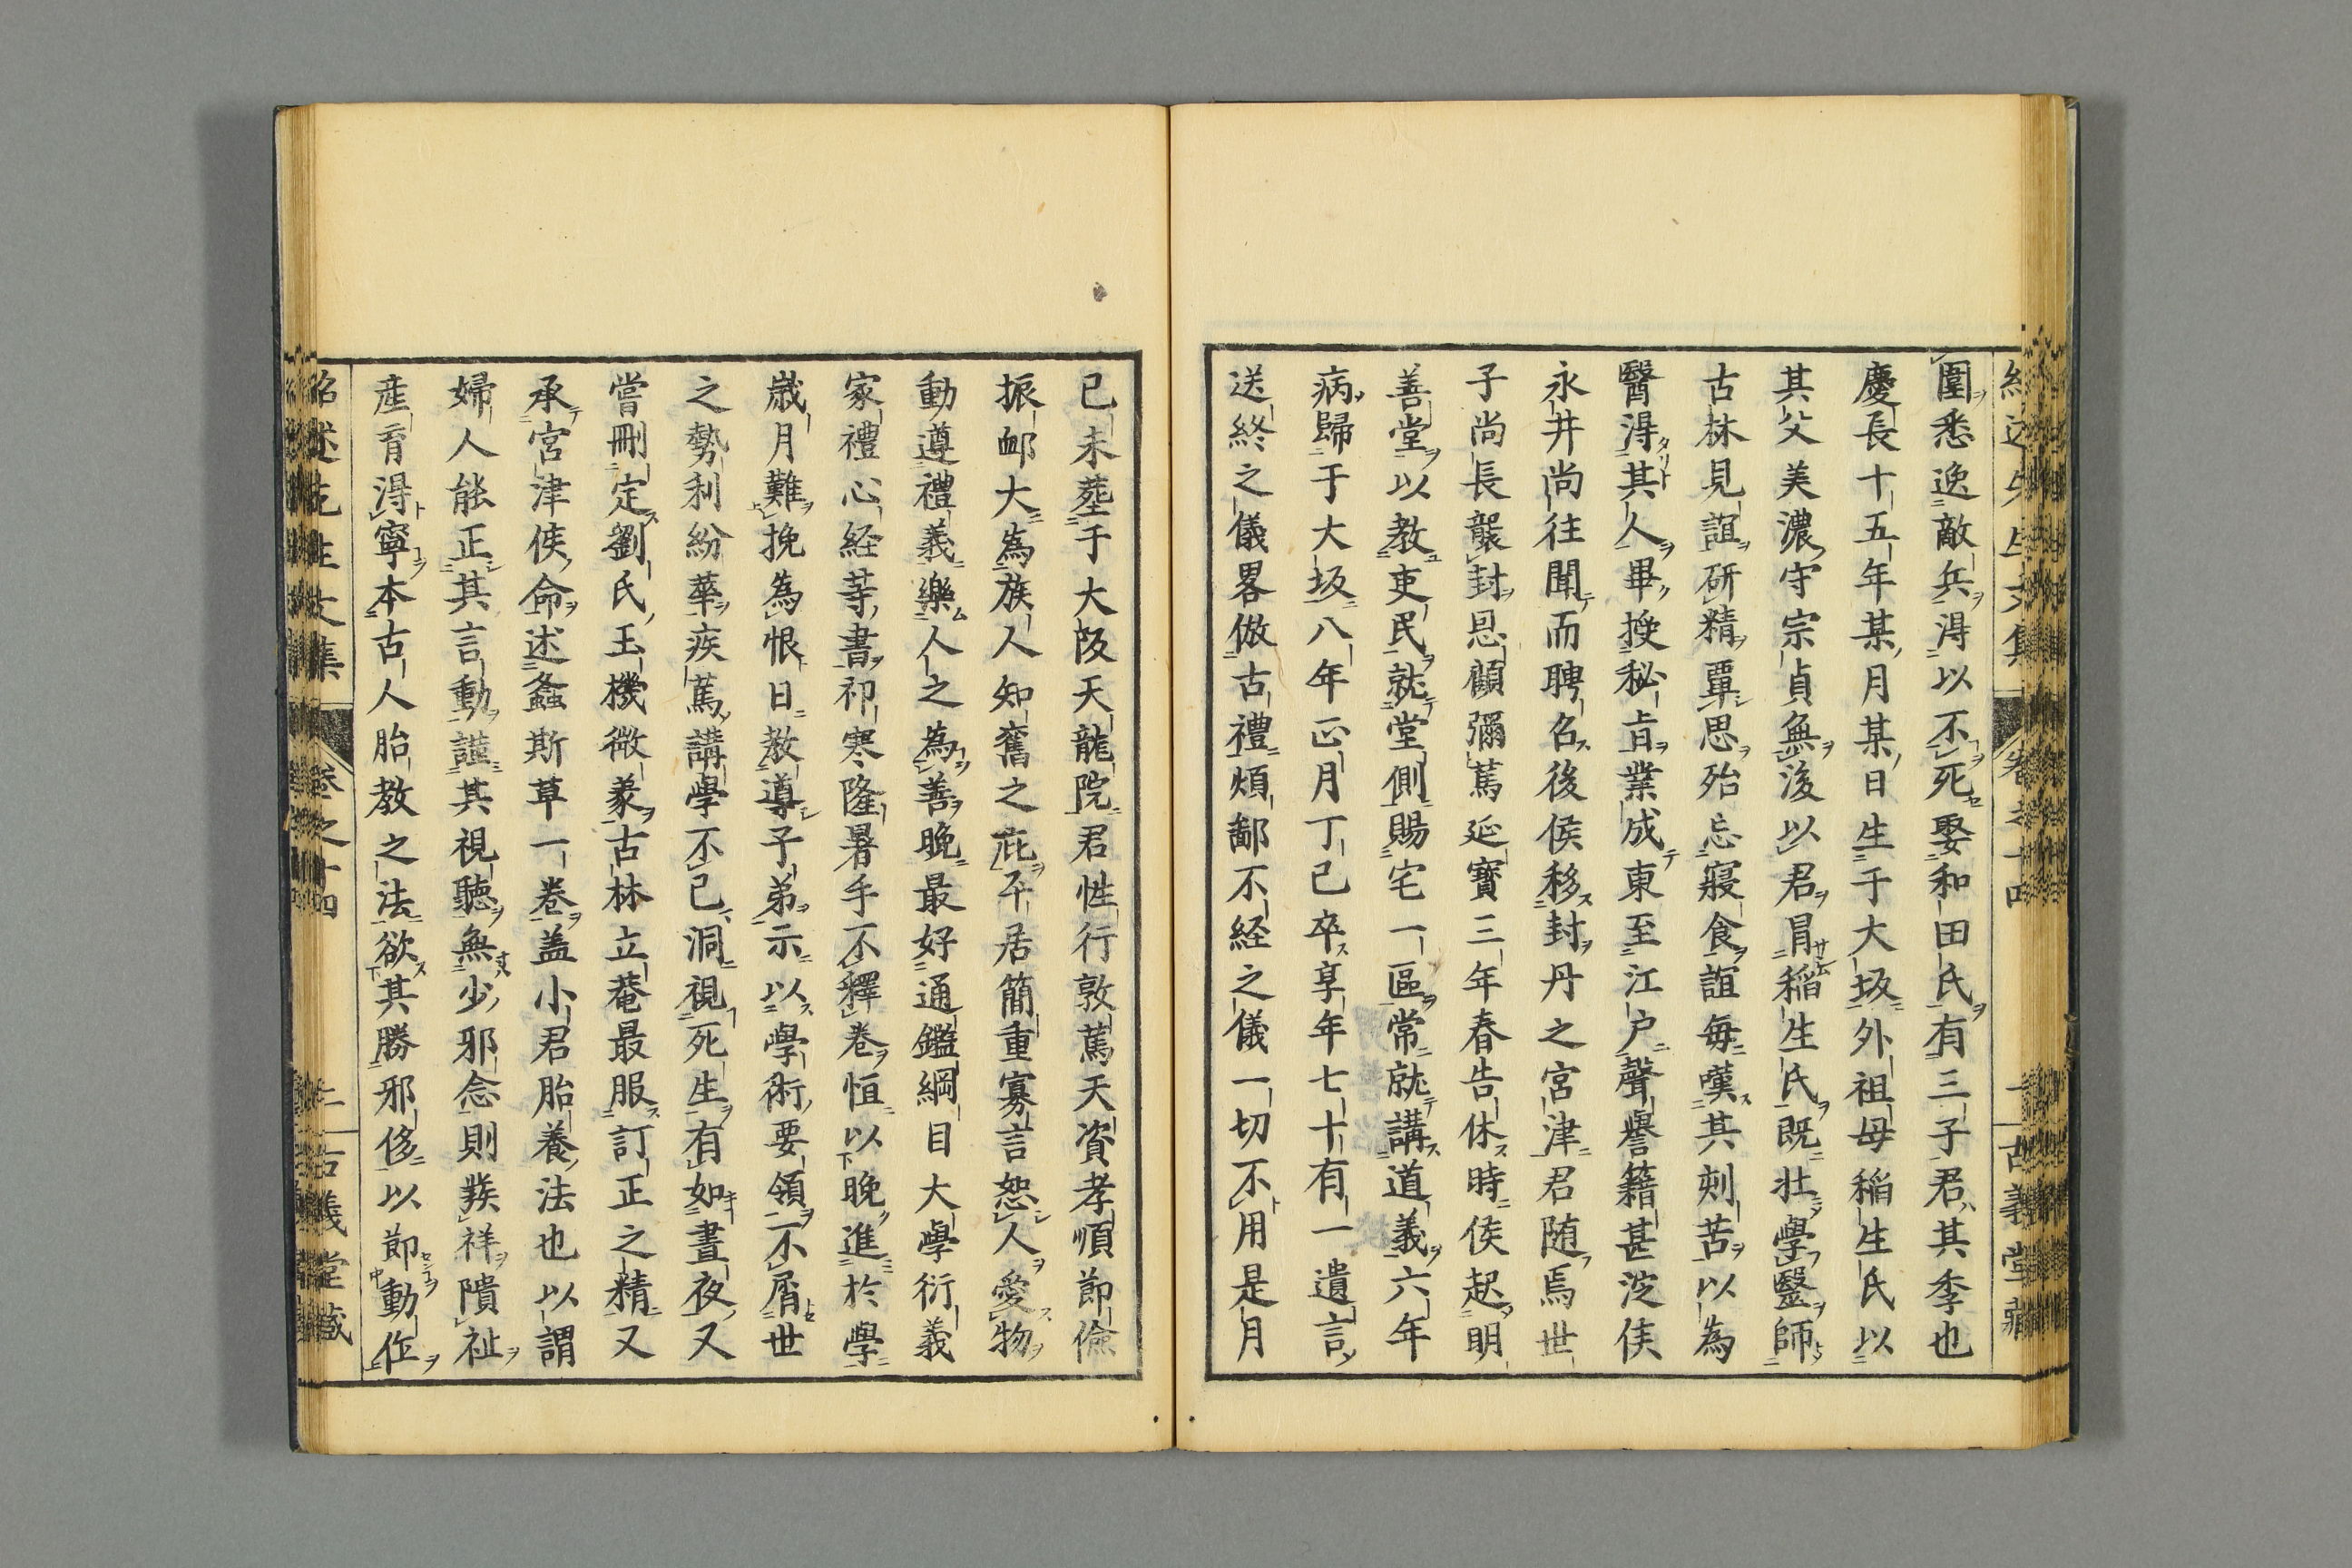 圍悉逸敵兵得以不死娶和田氏有三子君其季也
慶長十五年某月某日生于大坂外祖母稲生氏以
其父美濃守宗貞無後以君冒稲生氏既壮學醫師
古林見誼研精覃思殆忘寢食誼毎嘆其刻苦以為
醫得其人畢授秘旨業成東至江戸聲譽籍甚淀侯
永井尚往聞而聘召後侯移封丹之宮津君随焉世
子尚長襲封恩顧彌篤延寶三年春告休時侯起明
善堂以教吏民就堂側賜宅一區常就講道義六年
病歸于大坂八年正月丁已卒享年七十有一遺言
送終之儀畧倣古禮煩鄙不経之儀一切不用是月
已未塟于大阪天龍院君性行敦篤天資孝順節儉
振䘏大為族人知舊之庇平居簡重寡言恕人愛物
動遵禮義樂人之為善晩最好通鑑綱目大學衍義
家禮心経等書祁寒隆暑手不釋卷恒以晩進於學
歳月難挽為恨日教導子弟示以學術要領不屑世
之勢利紛華疾篤講學不已洞視死生有如晝夜又
嘗刪定劉氏玉機微義古林立菴最服訂正之精又
承宮津侯命述螽斯草一卷盖小君胎養法也以謂
婦人能正其言動謹其視聽無少邪念則羨祥隤祉
産育得寧本古人胎教之法欲其勝邪侈以節動作
紹述先生文集 卷之十四 古義堂藏